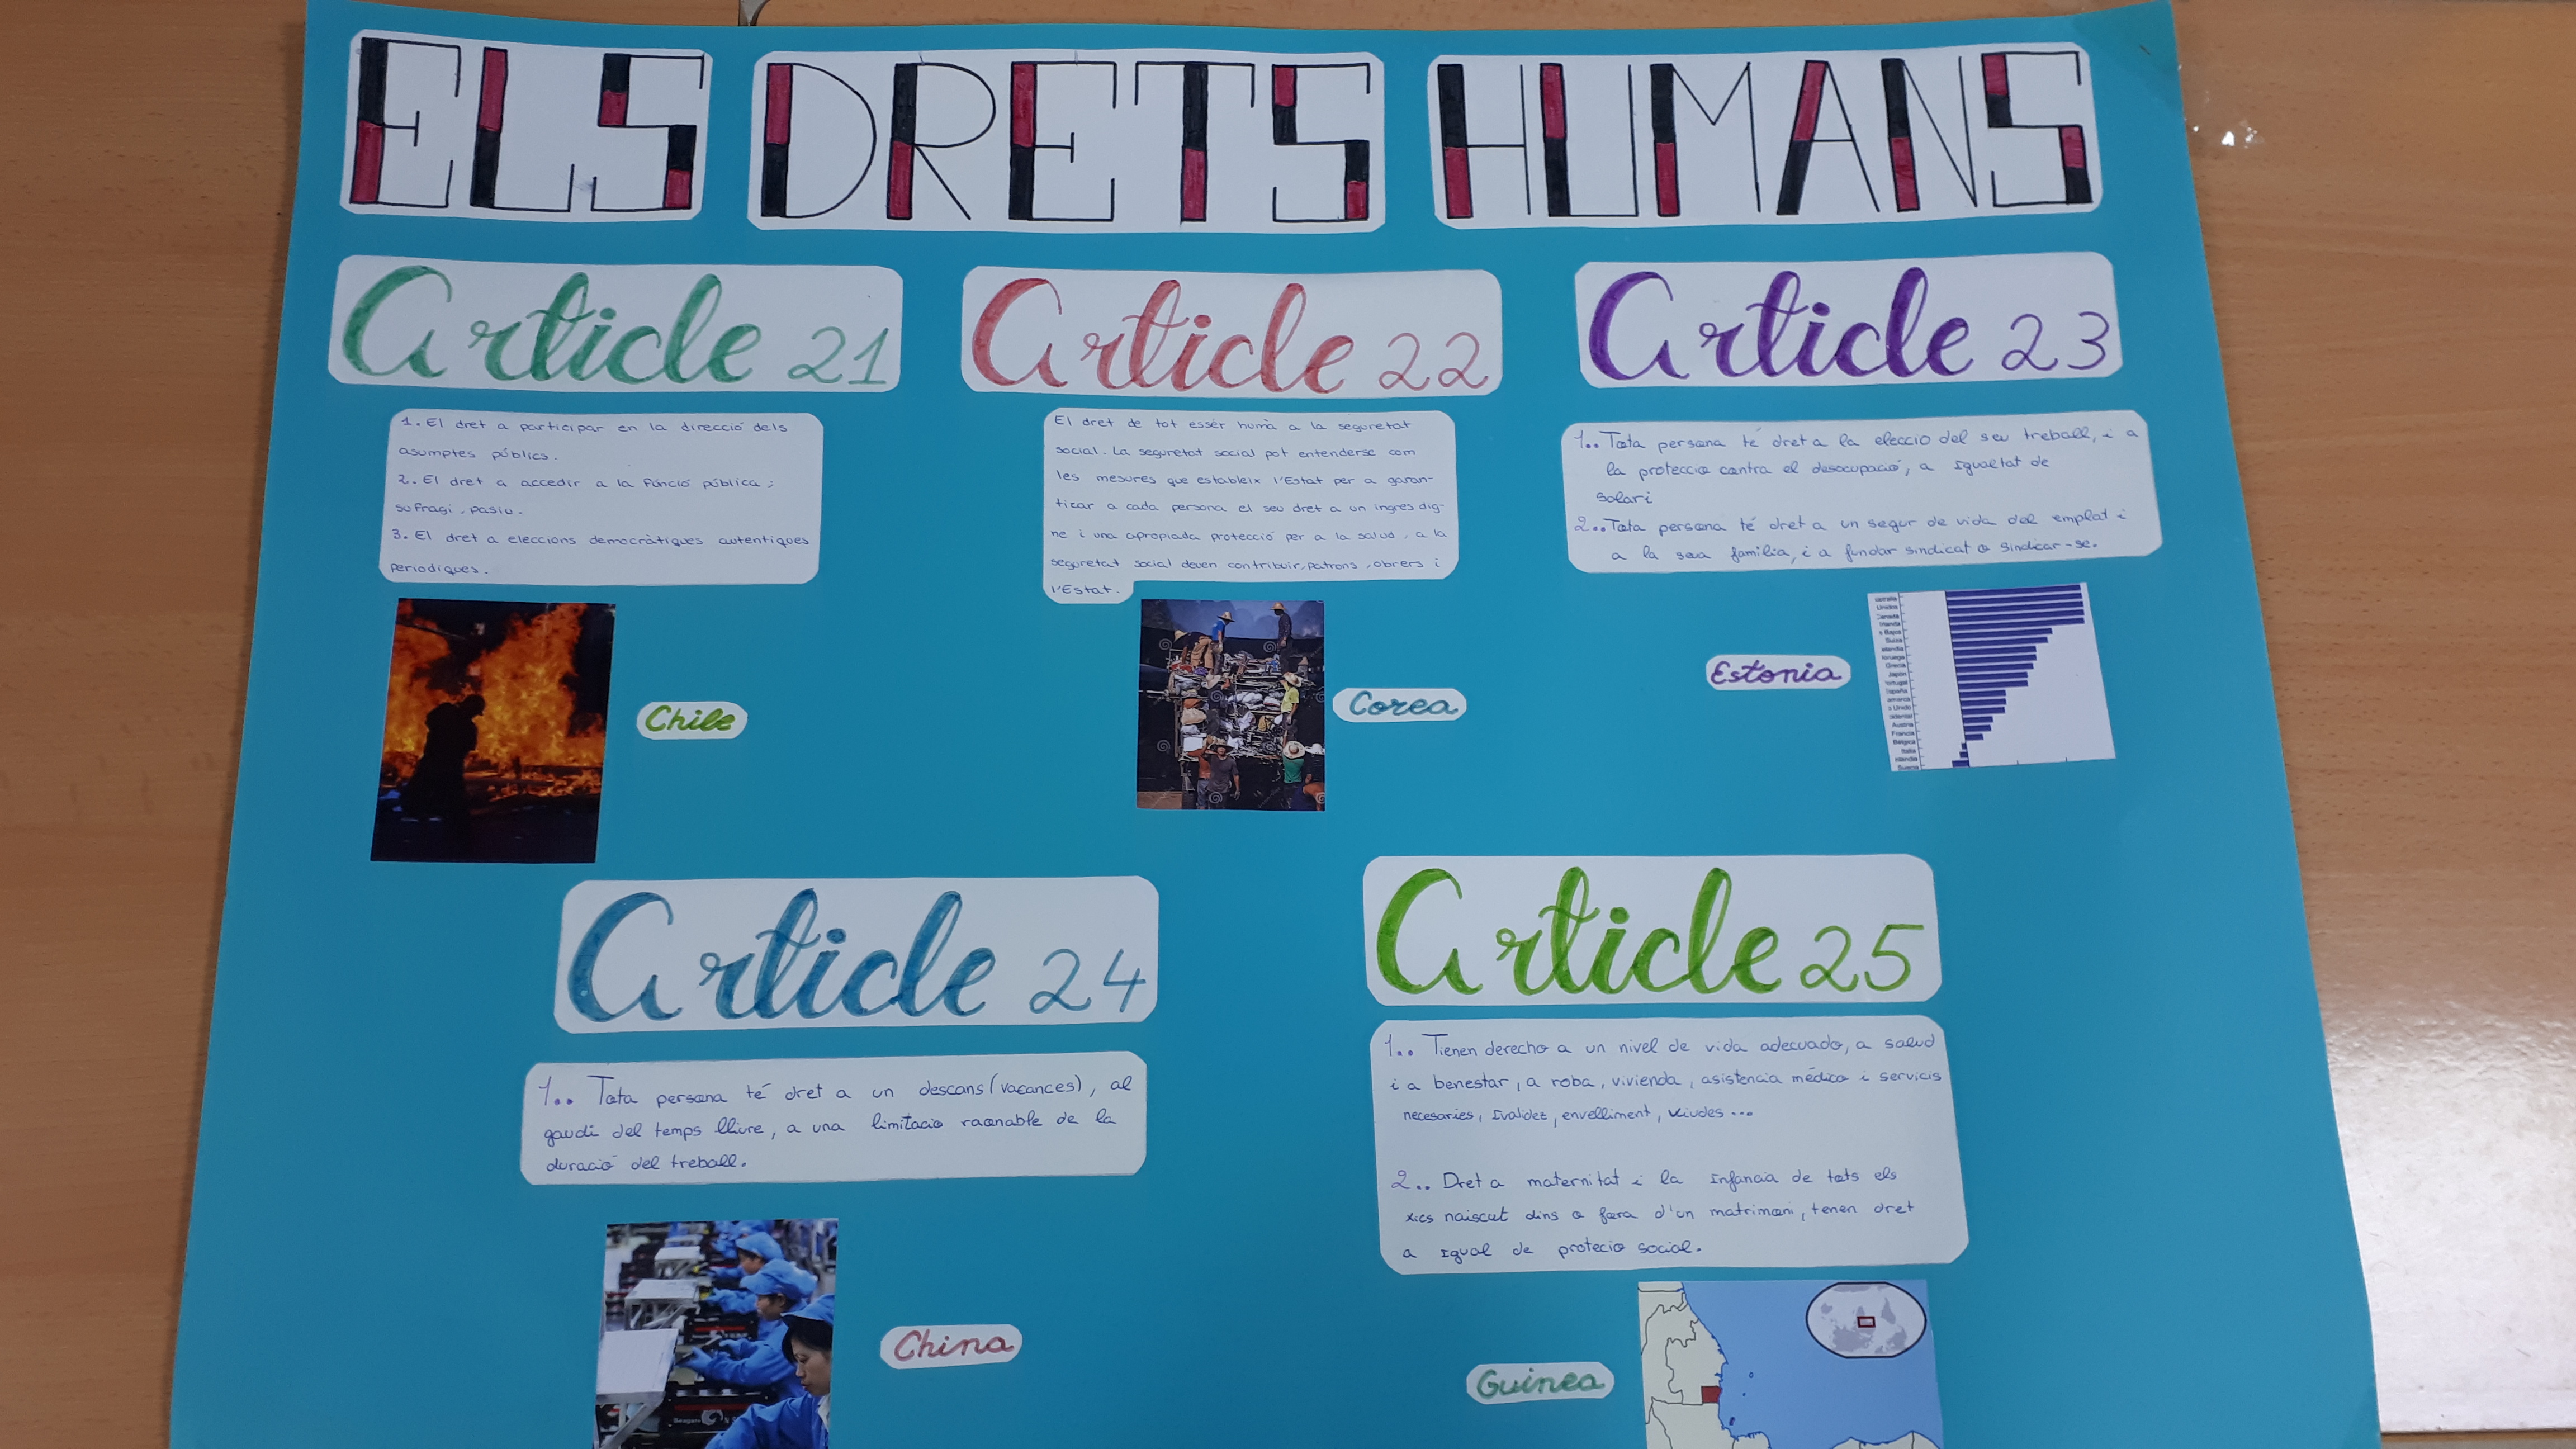 ELS DRETS HUMANS
Article 21
1. El dret a participar en la direcció dels
asumptes públics.
2. El dret a accedir a la funció pública;
sufragi. pasiu.
3. El dret a eleccions democràtiques autentiques
periodiques.
Chile
Article 22
El dret de tot essér humà a la seguretat
social. La seguretat social pot entenderse com
les mesures que estableix l'Estat per a garan-
ticar a cada persona el seu dret a un ingres dig-
ne i una apropiada protecció per a la salud, a la
seguretat social deuen contribuir, patrons, obrers i
l'Estat.
Corea
Article 23
1.. Tota persona té dret a la eleccio del seu treball, i a
la proteccio contra el desocupació, a Igualtat de
Solari
2.. Tota persona té dret a un segur de vida del emplat i
a la seua familia, i a fundar sindicat o sindicar-se.
Estonia
Unidos
Canadá
Irlanda
Suiza
Grecia
Japón
España
Austria
Francia
Bélgica
Italia
Suecia
Article 24
1.. Tota persona té dret a un descans (vacances), al
gaudi del temps lliure, a una limitacio raonable de la
duració del treball.
China
Seagate
Article 25
1.. Tienen derecho a un nivel de vida adecuado, a salud
i a benestar, a roba, vivienda, asistencia médica i servicis
necesaries, Ivalidez, envelliment, viudes...
2.. Dret a maternitat i la Infancia de tots els
xics naiscut dins o fora d'un matrimoni, tenen dret
a Igual de protecio social.
Guinea